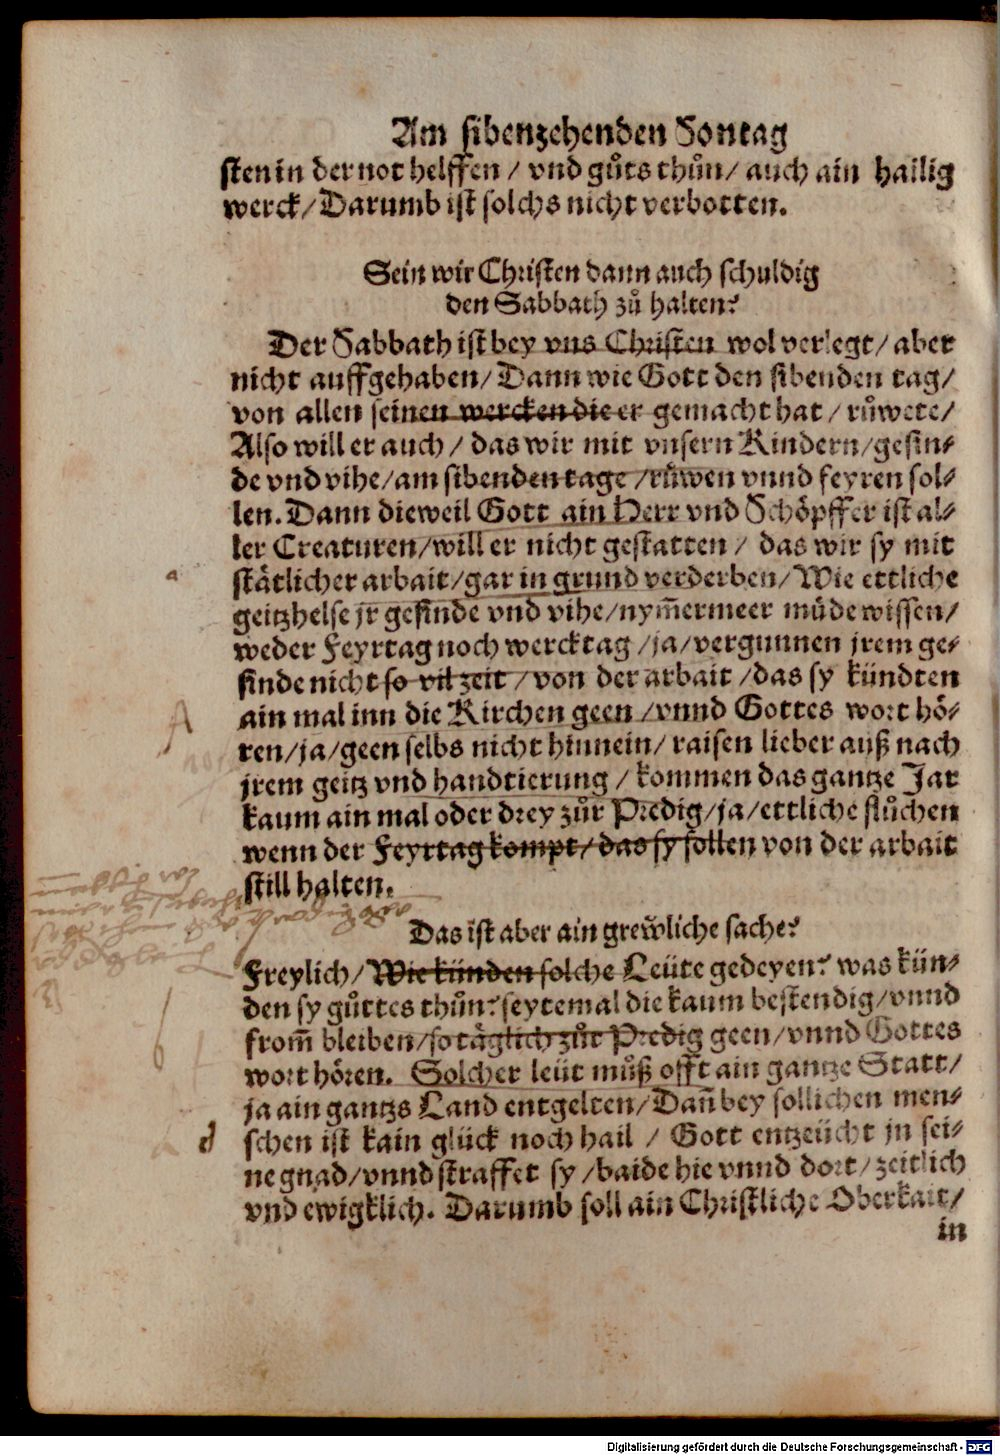 Am sibenzehenden Sontag
sten in der not helffen / vnd gůts thůn / auch ain hailig
werck / Darumb ist solchs nicht verbotten.
Sein wir Christen dann auch schuldig
den Sabbath zů halten?
Der Sabbath ist bey vns Christen wol verlegt / aber
nicht auffgehaben / Dann wie Gott den sibenden tag /
von allen seinen wercken die er gemacht hat / růwete /
Also will er auch / das wir mit vnsern Kindern / gesin-
de vnd vihe / am sibenden tage / růwen vnnd feyren sol-
len. Dann dieweil Gott ain Herr vnd Schöpffer ist al-
ler Creaturen / will er nicht gestatten / das wir sy mit
stätlicher arbait / gar in grund verderben / Wie ettliche
geitzhelse jr gesinde vnd vihe / nym̃ermeer müde wissen /
weder Feyrtag noch wercktag / ja / vergunnen jrem ge-
sinde nicht so vil zeit / von der arbait / das sy kündten
ain mal inn die Kirchen geen / vnnd Gottes wort hö-
ren / ja / geen selbs nicht hinnein / raisen lieber auß nach
jrem geitz vnd handtierung / kommen das gantze Jar
kaum ain mal oder drey zůr Predig / ja / ettliche flůchen
wenn der Feyrtag kompt / das sy sollen von der arbait
still halten.
Das ist aber ain grewliche sache?
Freylich / Wie künden solche Leüte gedeyen? was kün-
den sy gůttes thůn? seytemal die kaum bestendig / vnnd
from̃ bleiben / so täglich zůr Predig geen / vnnd Gottes
wort hören. Solcher leüt můß offt ain gantze Statt /
ja ain gantzs Land entgelten / Dañ bey sollichen men-
schen ist kain glück noch hail / Gott entzeücht jn sei-
ne gnad / vnnd straffet sy / baide hie vnnd dort / zeitlich
vnd ewigklich. Darumb soll ain Christliche Oberkait /
in
Digitalisierung gefördert durch die Deutsche Forschungsgemeinschaft - DFG